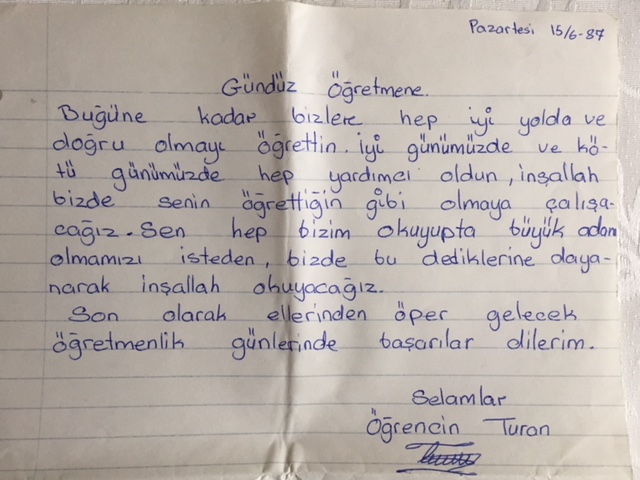 Pazartesi 15/6-87
Gündüz Öğretmene.
Buğüne kadar bizlere hep iyi yolda ve
doğru olmayı öğrettin. iyi günümüzde ve kö-
tü günümüzde hep yardımcı oldun, inşallah
bizde senin öğrettiğin gibi olmaya çalışa-
cağız. Sen hep bizim okuyupta büyük adam
olmamızı isteden, bizde bu dediklerine daya-
narak inşallah okuyacağız.
Son olarak ellerinden öper gelecek
öğretmenlik günlerinde başarılar dilerim.
Selamlar
Öğrencin Turan